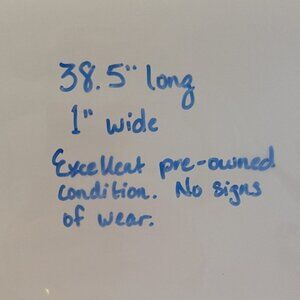 38.5" long
1" wide
Excellent pre-owned
condition. No signs
of wear.